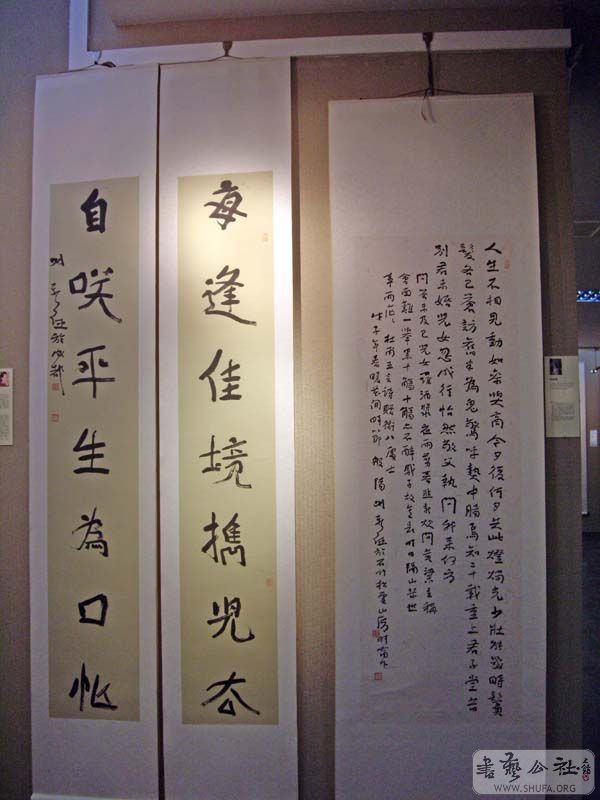 每逢佳境攜兒去
自咲平生為口忙
人生不相見動如參與商今夕復何夕共此燈燭光少壯能幾時鬢
髮各已蒼訪舊半為鬼驚呼熱中腸焉知二十載重上君子堂昔
別君未婚兒女忽成行怡然敬父執問我來何方
問答未及已兒女羅酒漿夜雨剪春韭新炊間黃粱主稱
會面難一舉累十觴十觴亦不醉感子故意長明日隔山岳世
事兩茫茫 杜甫五言詩贈衛八處士
書藝公社
WWW.SHUFA.ORG